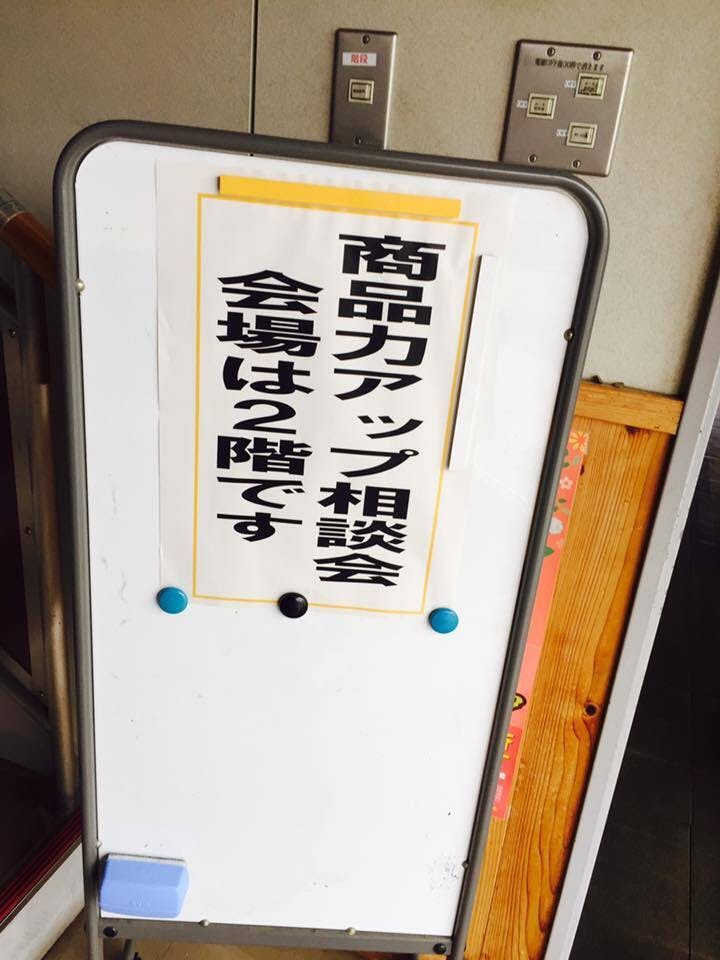 商品力アップ相談会
会場は2階です
階段